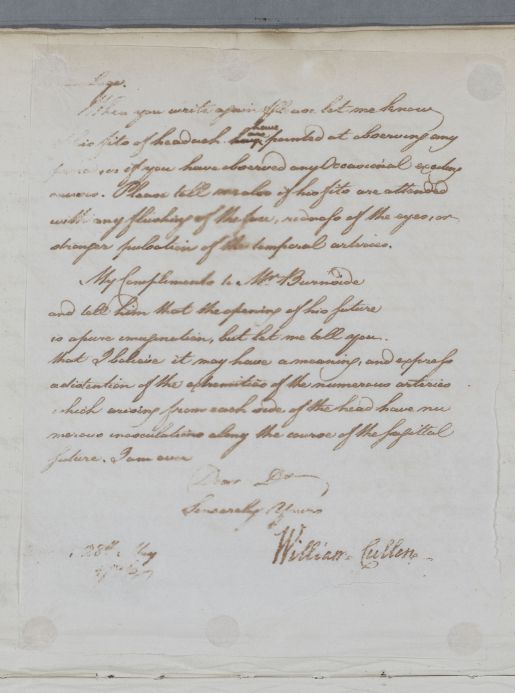 When you write again Please let me know
his fits of headach have are pointed at observing any
as if you have observed any Occasional exciting
causes. Please tell me also if his fits are attended
with any flushing of the face, redness of the eyes, or
stronger pulsation of the temporal arteries.
My Compliments to Mr Burnside
and tell him that the opening of his suture
is a pure imagination, but let me tell you
that I believe it may have a meaning, and express
a distention of the extremities of the numerous arteries
which arising from each side of the head have nu
merous inosculations along the course of the sagittal
suture. I am ever
Dear Dr
Sincerely Yours
28th May
William Cullen